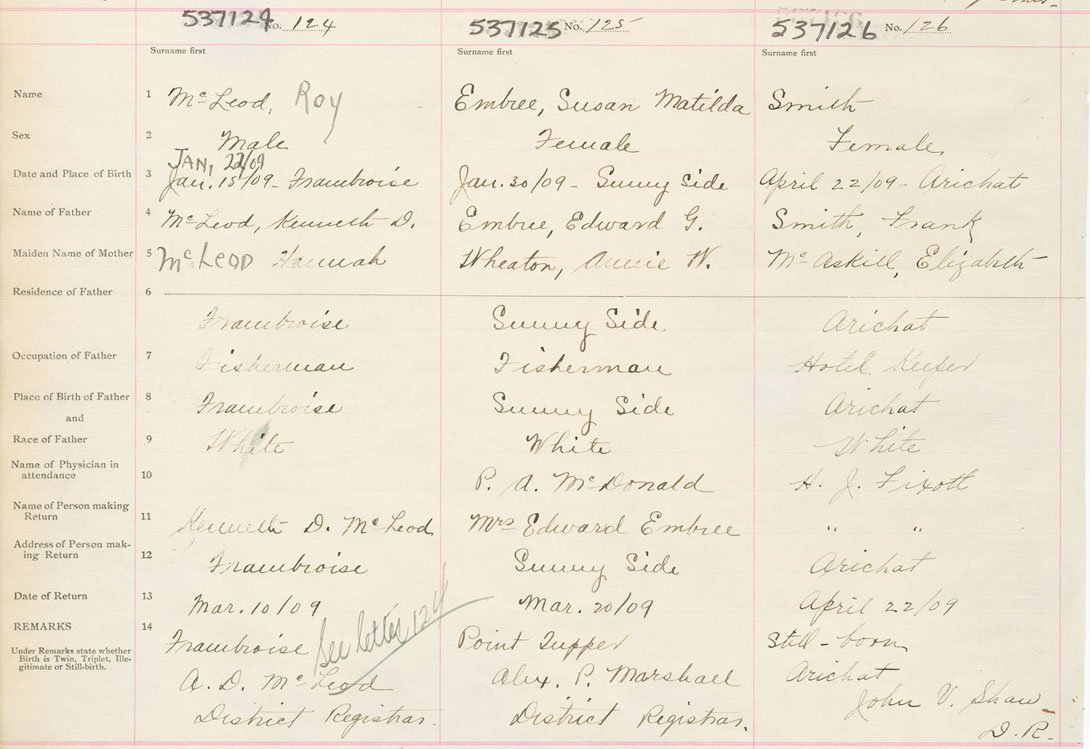 537124 No. 124 537125 No. 125 537126 No. 126
Surname first Surname first Surname first
Name 1 McLeod, Roy Embree, Susan Matilda Smith
Sex 2 Male Female Female
JAN, 22/09
Date and Place of Birth 3 Jan. 15/09 - Framboise Jan. 30/09 - Sunny Side April 22/09 - Arichat
Name of Father 4 McLeod, Kenneth D. Embree, Edward G. Smith, Frank
Maiden Name of Mother 5 McLEOD Hannah Wheaton, Annie W. McAskill, Elizabeth
Residence of Father 6
Framboise Sunny Side Arichat
Occupation of Father 7 Fisherman Fisherman Hotel Keeper
Place of Birth of Father 8 Framboise Sunny Side Arichat
and
Race of Father 9 White White White
Name of Physician in
attendance 10 P. A. McDonald H. J. Fixott
Name of Person making
Return 11 Kenneth D. McLeod Mrs Edward Embree " "
Address of Person mak-
ing Return 12 Framboise Sunny Side Arichat
Date of Return 13 Mar. 10/09 Mar. 20/09 April 22/09
REMARKS 14 Framboise See letter 124 Point Tupper Still-born
Under Remarks state whether
Birth is Twin, Triplet, Ille-
gitimate or Still-birth.
A. D. McLeod Alex. P. Marshall Arichat
John V. Shaw
District Registrar. District Registrar. D. R.